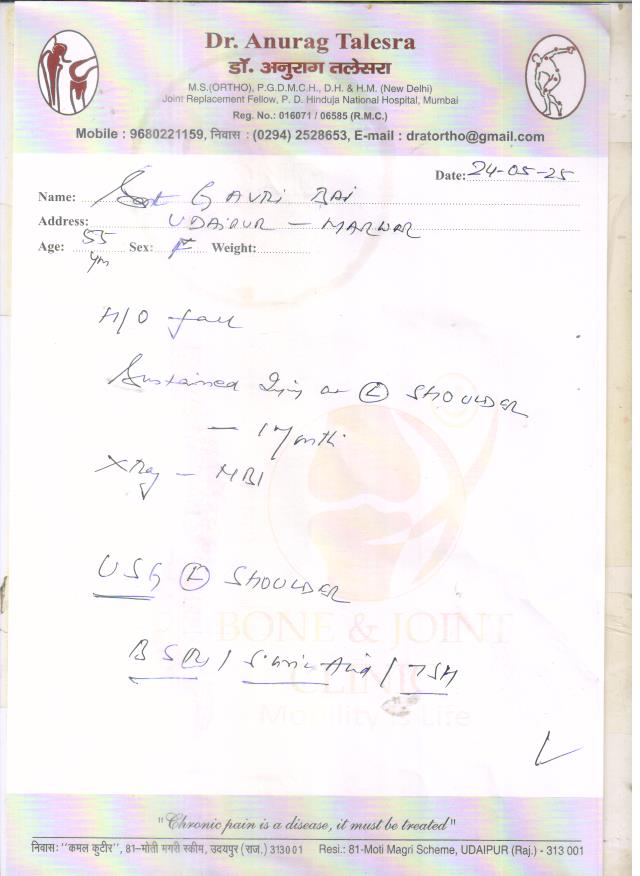 Dr. Anurag Talesra
डॉ. अनुराग तलेसरा
M.S.(ORTHO), P.G.D.M.C.H., D.H. & H.M. (New Delhi)
Joint Replacement Fellow, P. D. Hinduja National Hospital, Mumbai
Reg. No.: 016071 / 06585 (R.M.C.)
Mobile : 9680221159, निवास : (0294) 2528653, E-mail : dratortho@gmail.com
Date: 24-05-25
Name: GAVRI BAI
Address: UDAIPUR - MARWAR
Age: 55 Sex: F Weight:
yrs
H/O fall
Sustained Injury on Ⓛ SHOULDER
- 1 Month
Xray - NBI
USG Ⓛ SHOULDER
BONE & JOINT
B S(R) / S. Uric Acid / TSH
CLINIC
Mobility is Life
"Chronic pain is a disease, it must be treated"
निवास: "कमल कुटीर", 81-मोती मगरी स्कीम, उदयपुर (राज.) 313001 Resi.: 81-Moti Magri Scheme, UDAIPUR (Raj.) - 313 001